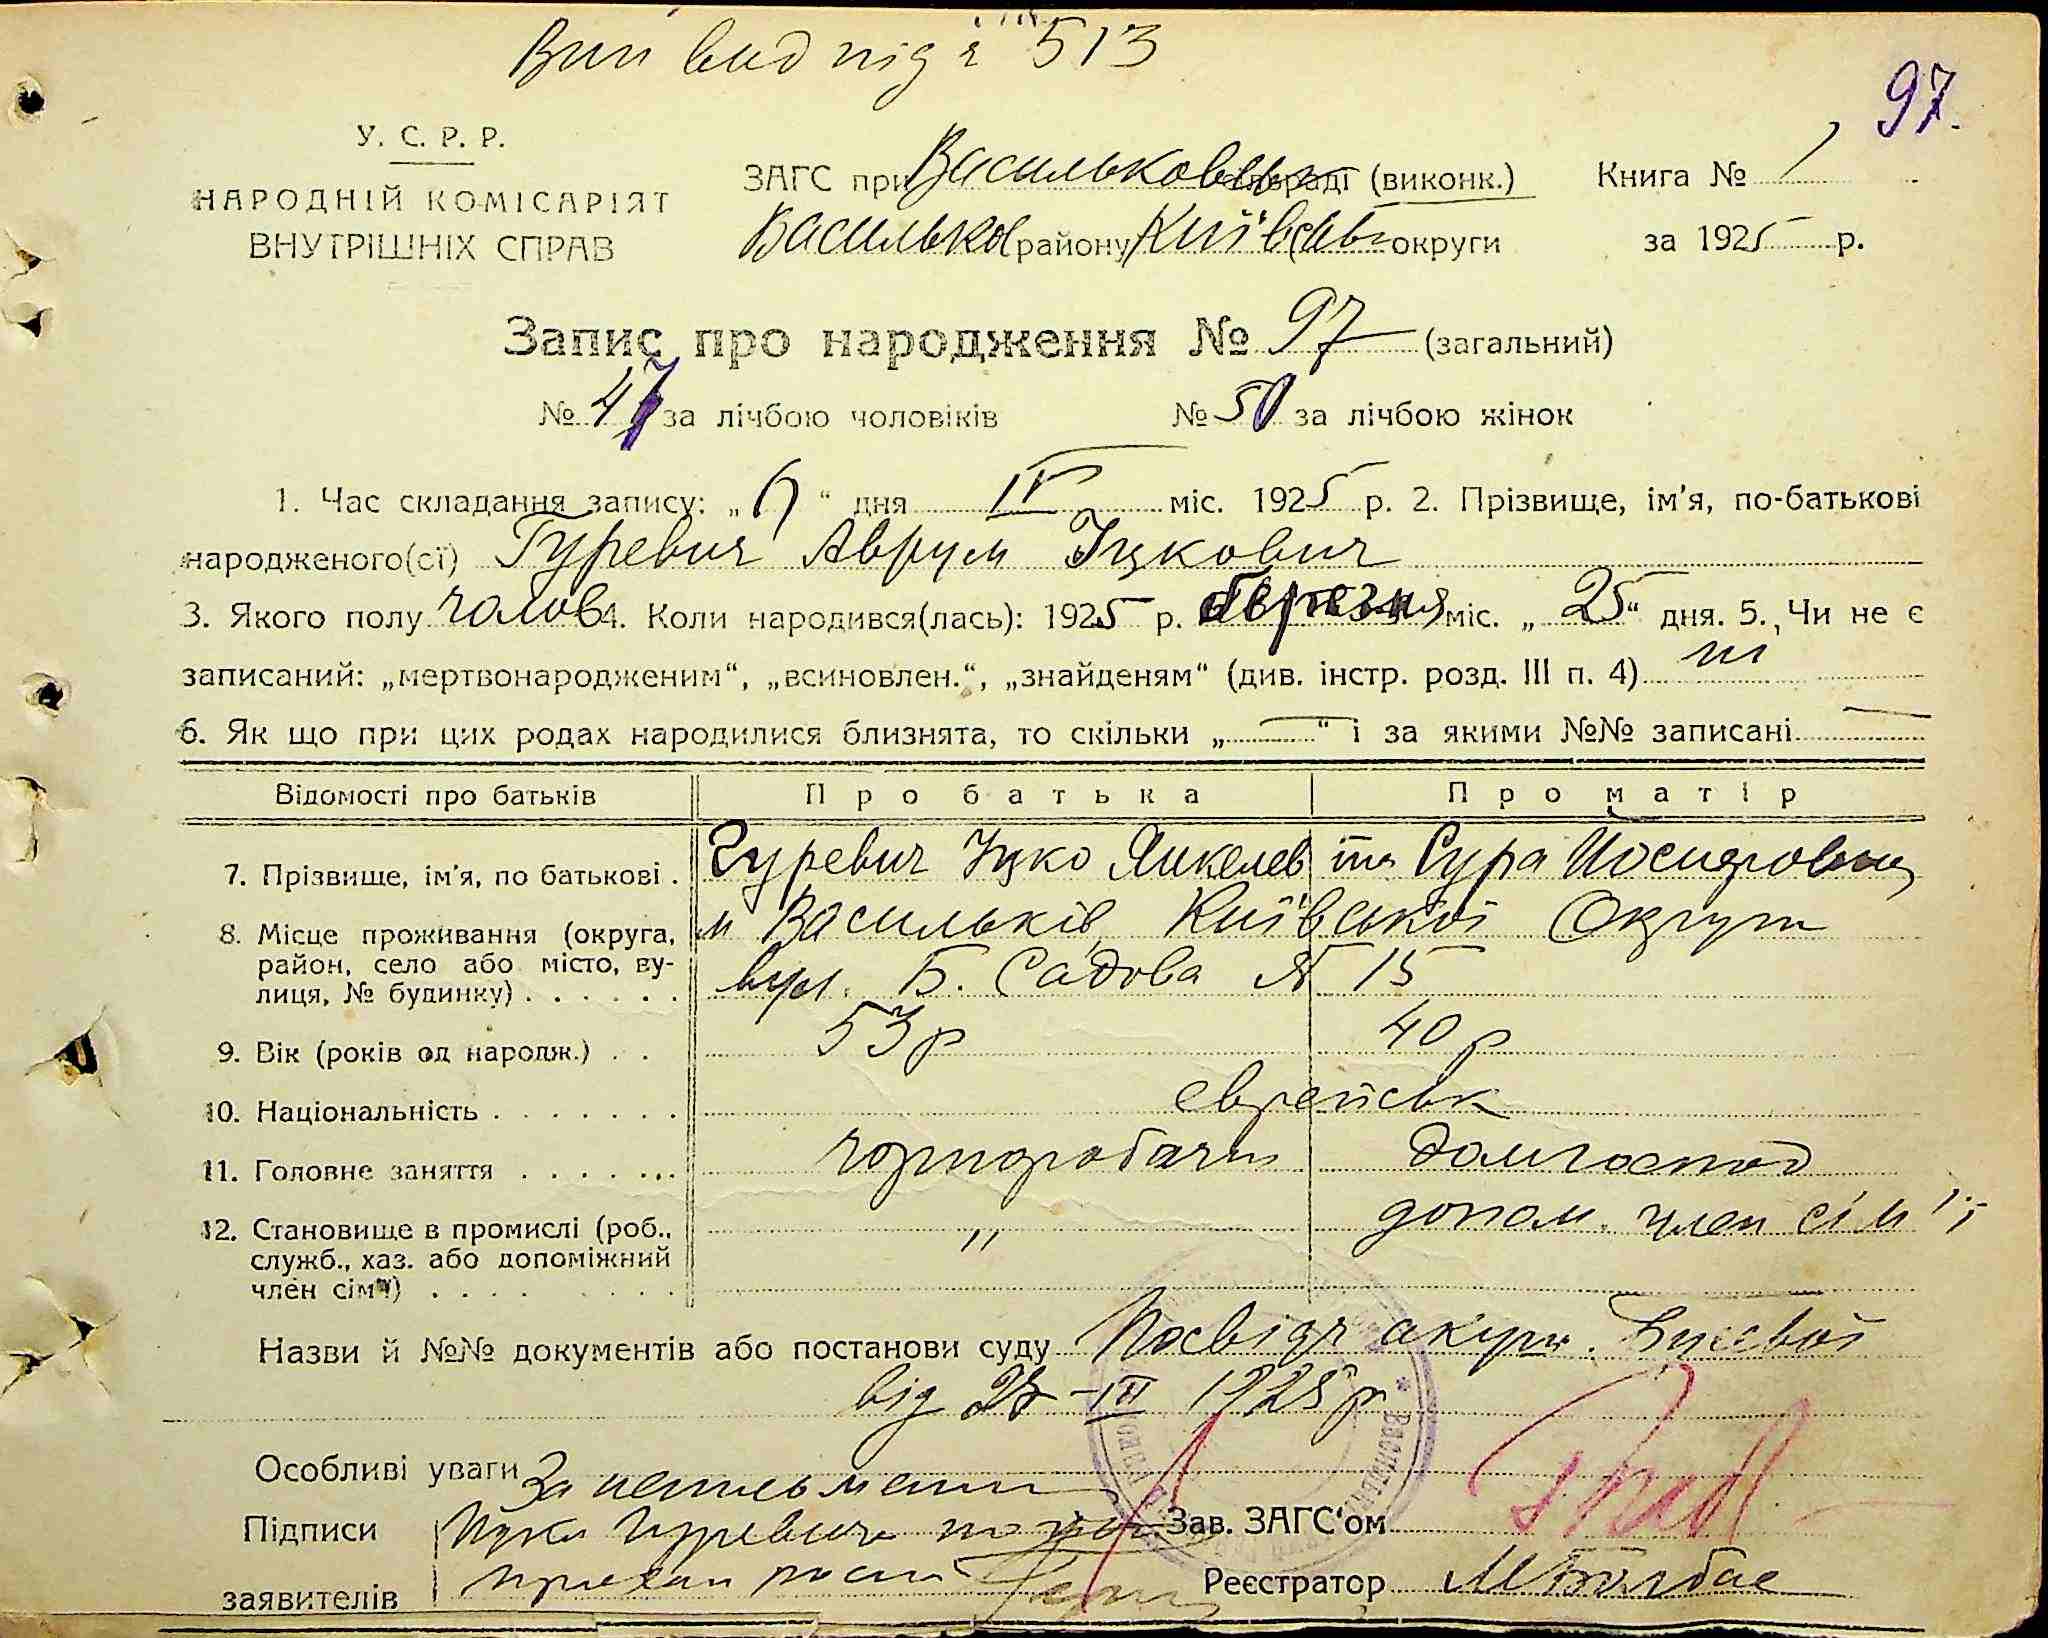 Вип вид під № 513
97.
У. С. Р. Р.
НАРОДНІЙ КОМІСАРІЯТ
ВНУТРІШНІХ СПРАВ
ЗАГС при Васильковськ раді (виконк.)
Васильков району Київськ округи
Книга № 1
за 1925 р.
Запис про народження № 97 (загальний)
№ 47 за лічбою чоловіків № 50 за лічбою жінок
1. Час складання запису: „ “ дня IV міс. 1925 р. 2. Прізвище, ім'я, по-батькові
народженого(сї) Гуревич Аврум Іцкович
3. Якого полу чолов 4. Коли народився(лась): 1925 р. березня міс. „25“ дня. 5. Чи не є
записаний: „мертвонародженим“, „всиновлен.“, „знайденям“ (див. інстр. розд. III п. 4) ні
6. Як що при цих родах народилися близнята, то скільки „—“ і за якими №№ записані —
Відомості про батьків Про батька Про матір
7. Прізвище, ім'я, по батькові . Гуревич Іцко Янкелев та Сура Йосифовна
8. Місце проживання (округа, м Васильків Київської Округи
район, село або місто, ву-
лиця, № будинку) . . . . . . вул. Б. Садова № 15
9. Вік (років од народж.) . . 53 р 40 р
10. Національність . . . . . . . єврейськ
11. Головне заняття . . . . . . . чорноробочий домгоспод
12. Становище в промислі (роб., " допом. член сім'ї
служб., хаз. або допоміжний
член сім'ї) . . . . . . . .
Назви й №№ документів або постанови суду Посвідч акуш.
від 27-III 1925 р
Особливі уваги
Підписи Іцко Гуревич
заявителів
Зав. ЗАГС'ом
Реєстратор